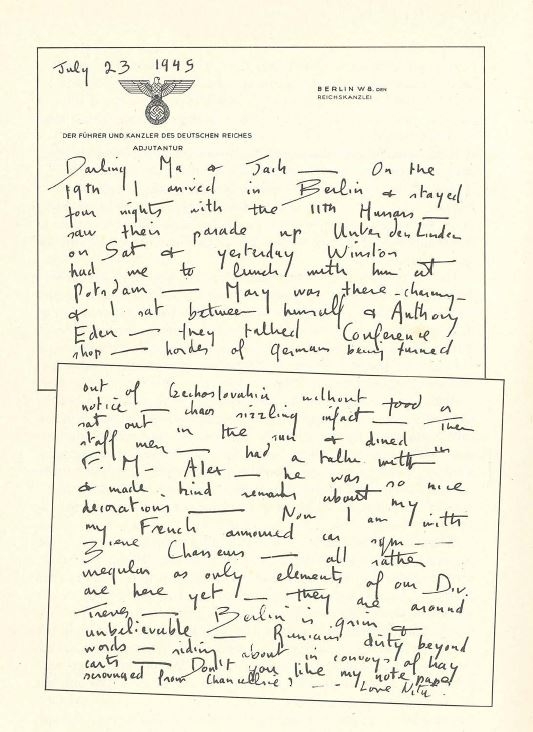 July 23 1945
BERLIN W 8, DEN
REICHSKANZLEI
DER FÜHRER UND KANZLER DES DEUTSCHEN REICHES
ADJUTANTUR
Darling Ma & Jack — On the
19th I arrived in Berlin & stayed
four nights with the 11th Hussars —
saw their parade up Unter den Linden
on Sat & yesterday Winston
had me to lunch with him at
Potsdam — Mary was there - charming -
& I sat between himself & Anthony
Eden — they talked Conference
shop — hordes of Germans being turned
out of Czechoslovakia without food or
notice — chaos sizzling in fact — Then
sat out in the sun & dined
staff men — had a talk with
F. M. Alex — he was so nice
& made kind remarks about my
decorations — Now I am with
my French armoured car sqn --
3ieme Chasseurs — all rather
irregular as only elements of our Div.
are here yet — they are around
Treves — Berlin is grim &
unbelievable — Russians dirty beyond
words — riding about in convoys of hay
carts — Don't you like my note paper
scrounged from Chancellerie, -- Love Nita.